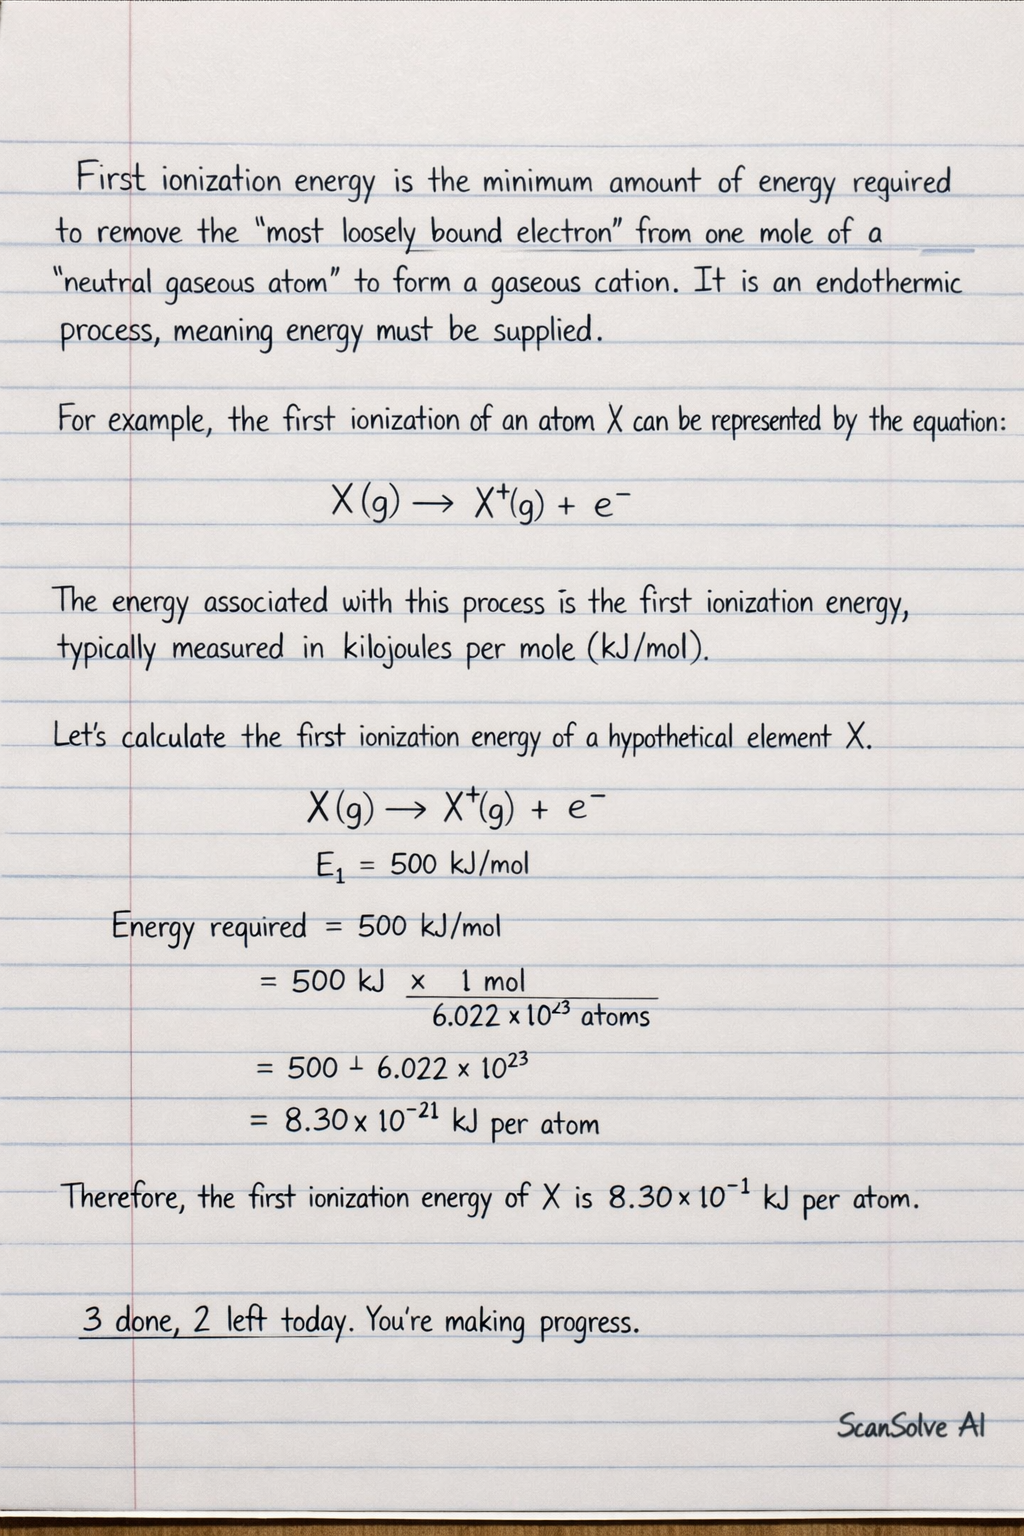 First ionization energy is the minimum amount of energy required
to remove the "most loosely bound electron" from one mole of a
"neutral gaseous atom" to form a gaseous cation. It is an endothermic
process, meaning energy must be supplied.
For example, the first ionization of an atom X can be represented by the equation:
X(g) → X⁺(g) + e⁻
The energy associated with this process is the first ionization energy,
typically measured in kilojoules per mole (kJ/mol).
Let's calculate the first ionization energy of a hypothetical element X.
X(g) → X⁺(g) + e⁻
E₁ = 500 kJ/mol
Energy required = 500 kJ/mol
= 500 kJ × 1 mol
6.022 × 10²³ atoms
= 500 ┴ 6.022 × 10²³
= 8.30 × 10⁻²¹ kJ per atom
Therefore, the first ionization energy of X is 8.30 × 10⁻¹ kJ per atom.
3 done, 2 left today. You're making progress.
ScanSolve AI